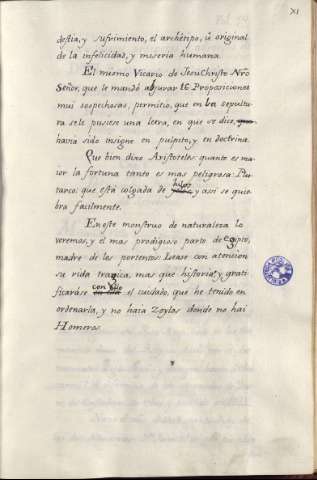 XI
destia, y sufrimiento, el archètipo, û original
de la infelicidad, y miseria humana.
El mismo Vicario de Jesu Christo Nrõ
Señor, que le mandó abjurar 16 Proposiciones
mui sospechosas, permitio, que en la sepultu
ra se le pusiese una letra, en que se dice, que
havia sido insigne en pulpito, y en doctrina.
Que bien dixo Aristoteles: quanto es ma
ior la fortuna tanto es mas peligrosa: Plu
tarco: que está colgada de hilos y assi se quie
bra facilmente.
En este monstruo de naturaleza lo
veremos, y el mas prodigioso parto de Egipto,
madre de los portentos. Lease con atencion
su vida tragica, mas que historia, y grati
ficaràse con ello el cuidado, que he tenido en
ordenarla, y no haia Zoylos donde no hai
Homeros.